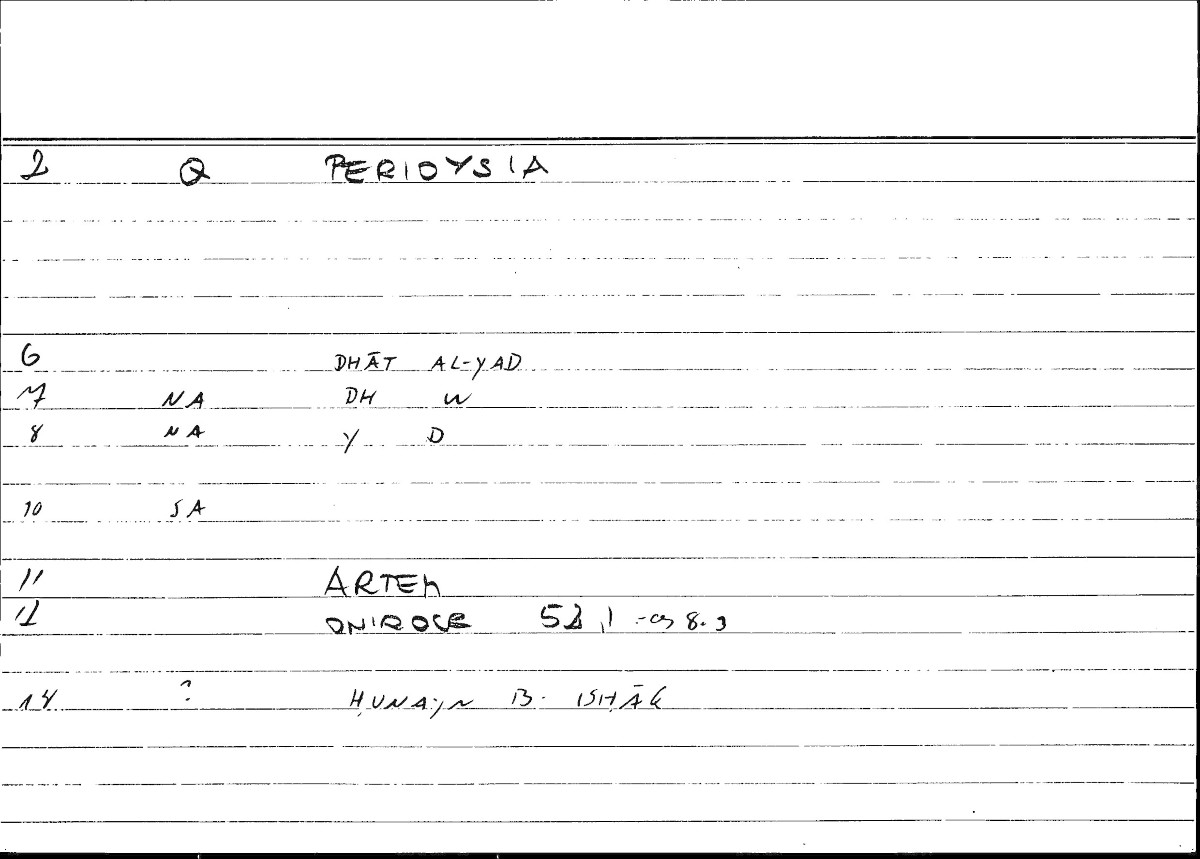 2 Q PERIOYSIA
6 DHĀT AL-YAD
7 NA DH W
8 NA Y D
10 SA
11 ARTEM
12 ONIROCR 52,1 8.3
14 ? ḤUNAYN B. ISḤĀḲ